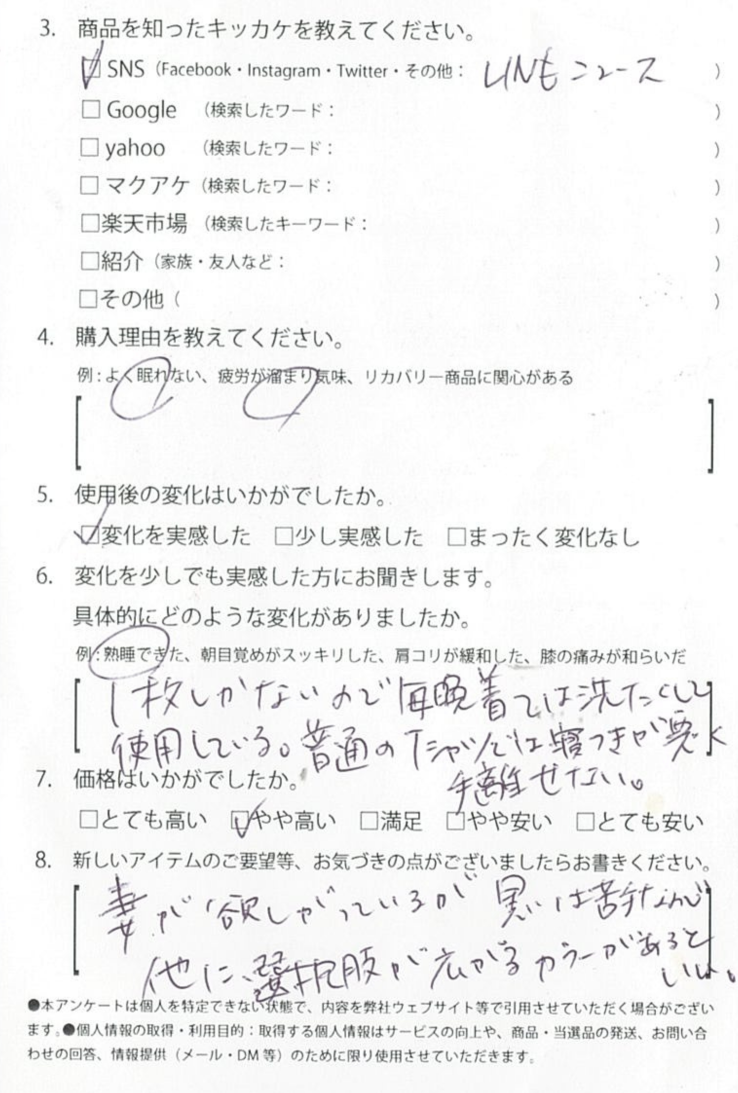 3. 商品を知ったキッカケを教えてください。
☑ SNS（Facebook・Instagram・Twitter・その他： LINEニュース ）
□ Google （検索したワード： ）
□ yahoo （検索したワード： ）
□ マクアケ（検索したワード： ）
□楽天市場 （検索したキーワード： ）
□紹介（家族・友人など： ）
□その他（ ）
4. 購入理由を教えてください。
例：よく眠れない、疲労が溜まり気味、リカバリー商品に関心がある
5. 使用後の変化はいかがでしたか。
☑変化を実感した □少し実感した □まったく変化なし
6. 変化を少しでも実感した方にお聞きします。
具体的にどのような変化がありましたか。
例：熟睡できた、朝目覚めがスッキリした、肩コリが緩和した、膝の痛みが和らいだ
1枚しかないので毎晩着ては洗たくして
使用している。普通のTシャツでは寝つきが悪く
手離せない。
7. 価格はいかがでしたか。
□とても高い ☑やや高い □満足 □やや安い □とても安い
8. 新しいアイテムのご要望等、お気づきの点がございましたらお書きください。
妻が欲しがっているが黒は苦手なので
他に、選択肢が広がるカラーがあると
いい。
●本アンケートは個人を特定できない状態で、内容を弊社ウェブサイト等で引用させていただく場合がござい
ます。●個人情報の取得・利用目的：取得する個人情報はサービスの向上や、商品・当選品の発送、お問い合
わせの回答、情報提供（メール・DM 等）のために限り使用させていただきます。